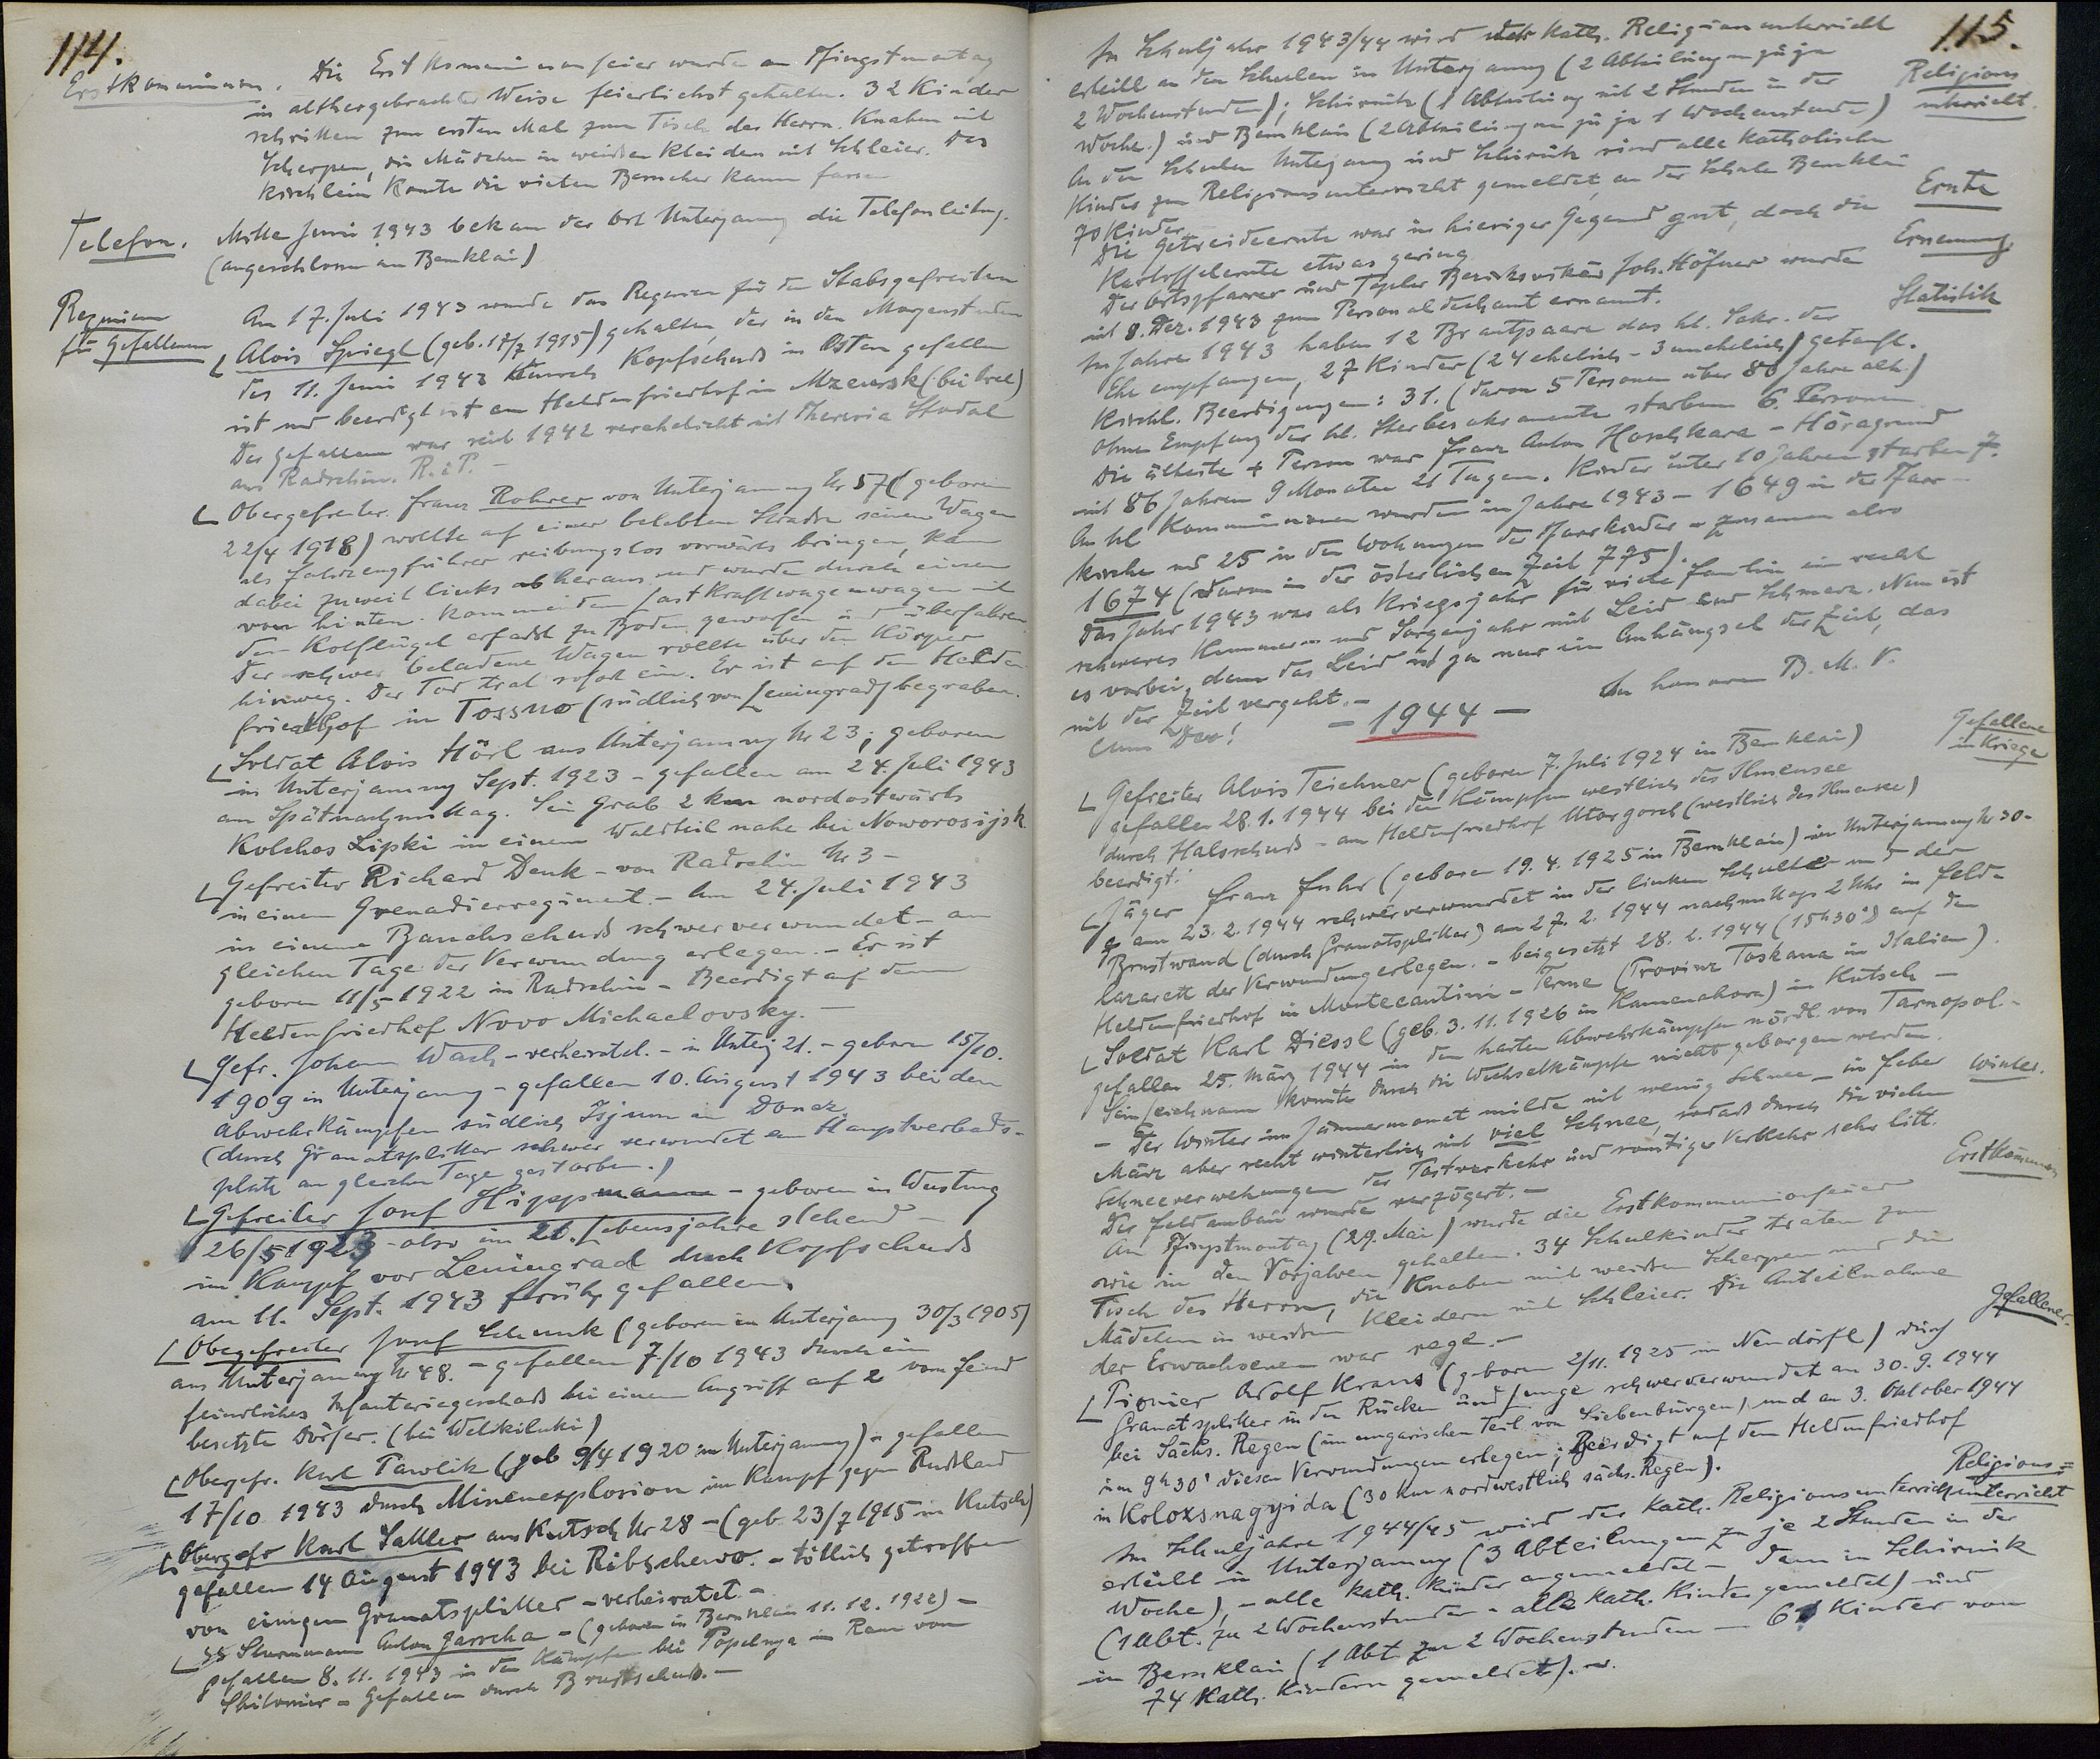 114.
Erstkommunion. Die Erstkommunionfeier wurde am Pfingstmontag
in althergebrachter Weise feierlichst gehalten. 32 Kinder
schritten zum ersten Mal zum Tisch des Herrn. Knaben mit
Scherpen, die Mädchen in weissen Kleidern mit Schleier. Das
Kirchlein konnte die vielen Besucher kaum fassen
Telefon. Mitte Juni 1943 bekam der Ort Unterjamny die Telefonleitung.
(angeschlossen an Bernklau)
Requiem
für Gefallenen
Am 17. Juli 1943 wurde das Requiem für den Stabsgefreiten
Alois Spiegl (geb. 17/7 1915) gehalten, der in den Morgenstunden
des 11. Juni 1943 durch Kopfschuß im Osten gefallen
ist und beerdigt ist am Heldenfriedhof in Mzensk (bei Orel)
Der Gefallene war seit 1942 verehelicht mit Theresia Stadal
aus Radschin. R.i.P. –
Obergefreiter Franz Rohrer von Unterjamny Nr 57 (geboren
22/4 1918) wollte auf einer belebten Straße seinen Wagen
als Fahrzeugführer reibungslos vorwärts bringen, kam
dabei zuweit links ab heraus und wurde durch einen
von hinten kommenden Lastkraftwagenwagen mit
dem Kotflügel erfaßt zu Boden geworfen und überfahren.
Der schwer beladene Wagen rollte über den Körper
hinweg. Der Tod trat sofort ein. Er ist auf dem Helden
friedhof in Tossno (südlich von Leningrad) begraben.
Soldat Alois Hörl aus Unterjamny Nr 23; geboren
in Unterjamny Sept. 1923 – gefallen am 24. Juli 1943
am Spätnachmittag. Sein Grab 2 km nordostwärts
Kolchos Lipski in einem Waldteil nahe bei Noworosijsk.
Gefreiter Richard Denk – von Radschin Nr 3 –
in einem Grenadierregiment. – Am 24. Juli 1943
in einem Bauchschuß schwer verwundet – am
gleichen Tage der Verwundung erlegen. – Er ist
geboren 11/5 1922 in Radschin – Beerdigt auf dem
Heldenfriedhof Novo Michaelovsky. –
Gefr. Johann Wach – verheiratet. – in Unterj 21. – geboren 15/10.
1909 in Unterjamny – gefallen 10. August 1943 bei den
Abwehrkämpfen südlich Isjum am Donez.
(durch Granatsplitter schwer verwundet am Hauptverbands-
platz am gleichen Tage gestorben.)
Gefreiter Josef Hippmann – geboren in Wustung
26/5 1923 – also im 21. Lebensjahre stehend –
im Kampf vor Leningrad durch Kopfschuß
am 11. Sept. 1943 früh gefallen.
Obergefreiter Josef Schunk (geboren in Unterjamny 30/3 1905)
aus Unterjamny Nr 48. – gefallen 7/10 1943 durch ein
feindliches Infanteriegeschoß bei einem Angriff auf 2 vom Feind
besetzte Dörfer. (bei Welikiluki)
Obergefr. Karl Pawlik (geb 9/4 1920 in Unterjamny) – gefallen
17/10 1943 durch Minenexplosion im Kampf gegen Rußland
Obergefr Karl Sattler aus Kutsch Nr 28 – (geb. 23/7 1915 in Kutsch)
gefallen 14 August 1943 bei Ribschewo. – tötlich getroffen
von einigen Granatsplitter – verheiratet –
SS Sturmmann Anton Jarscha – (geboren in Bernklau 11.12.1922) –
gefallen 8.11.1943 in den Kämpfen bei Popelnja im Raum von
Shitomir – Gefallen durch Brustschuß. –
115.
Im Schuljahr 1943/44 wird der kath. Religionsunterricht
erteilt an den Schulen in Unterjamny (2 Abteilungen zu je
2 Wochenstunden); Schirnik (1 Abteilung mit 2 Stunden in der
Woche) und Bernklau (2 Abteilungen zu je 1 Wochenstunde)
Religions
unterricht.
An den Schulen Unterjamny und Schirnik sind alle katholischen
Kinder zum Religionsunterricht gemeldet, an der Schule Bernklau
70 Kinder
Die Getreideernte war in hiesiger Gegend gut, doch die
Kartoffelernte etwas gering
Ernte
Der Ortspfarrer und Tepler Bezirksvikär Joh. Höfner wurde
mit 8. Dez. 1943 zum Personaldechant ernannt.
Ernennung
Im Jahre 1943 haben 12 Brautpaare das hl. Sakr. der
Ehe empfangen, 27 Kinder (24 ehelich – 3 unehelich) getauft.
Statistik
Kirchl. Beerdigungen: 31. (davon 5 Personen über 80 Jahre alt.)
Ohne Empfang der hl. Sterbesakramente starben 6. Personen
Die älteste + Person war Franz Anton Haschkara – Höragrund
mit 86 Jahren 9 Monaten 21 Tagen. Kinder unter 10 Jahren starben 7.
An hl Kommunionen wurden im Jahre 1943 – 1649 in der Pfarr-
kirche und 25 in den Wohnungen der Pfarrkinder – zusammen also
1674 (davon in der österlichen Zeit 775).
Das Jahr 1943 war als Kriegsjahr für viele Familien ein recht
schweres Kummer- und Sorgenjahr mit Leid und Schmerz. Nun ist
es vorbei, denn das Leid ist ja nur ein Anhängsel der Zeit, das
mit der Zeit vergeht. –
Cum Deo! – 1944 – In honorem B. M. V.
Gefallene
im Kriege
Gefreiter Alois Teichner (geboren 7. Juli 1924 in Bernklau)
gefallen 28.1.1944 bei den Kämpfen westlich des Ilmensee
durch Halsschuß – am Heldenfriedhof Utorgosch (westlich des Ilmensee)
beerdigt.
Jäger Franz Fuhr (geboren 19.4.1925 in Bernklau) in Unterjamny Nr 30 –
am 23.2.1944 schwerverwundet in der linken Schulter und der
Brustwand (durch Granatsplitter) am 27.2.1944 nachmittags 2 Uhr im Feld-
lazarett der Verwundung erlegen. – beigesetzt 28.2.1944 (15h30') auf dem
Heldenfriedhof in Montecantini-Terme (Provinz Toskana in Italien).
Soldat Karl Diessl (geb. 3.11.1926 in Kamenahora) in Kutsch –
gefallen 25. März 1944 in den harten Abwehrkämpfen nördl. von Tarnopol. –
Sein Leichnam konnte durch die Wechselkämpfe nicht geborgen werden.
– Der Winter im Jännermonat milde mit wenig Schnee – im Feber
Winter.
März aber recht winterlich mit viel Schnee, sodaß durch die vielen
Schneeverwehungen der Postverkehr und sonstiger Verkehr sehr litt.
Der Feldanbau wurde verzögert. –
Erstkommunion
Am Pfingstmontag (29. Mai) wurde die Erstkommunionfeier
wie in den Vorjahren gehalten. 34 Schulkinder traten zum
Tisch des Herrn, die Knaben mit weissen Scherpen und die
Mädchen in weissen Kleidern mit Schleier. Die Anteilnahme
der Erwachsenen war rege. –
Gefallener.
Pionier Adolf Kraus (geboren 2/11. 1925 in Neudörfl) durch
Granatsplitter in den Rücken und Lunge schwerverwundet am 30.9.1944
bei Sächs. Regen (im ungarischen Teil von Siebenbürgen) und am 3. Oktober 1944
um 9h30' diesen Verwundungen erlegen; Beerdigt auf dem Heldenfriedhof
in Koloxsnagyida (30 km nordwestlich sächs. Regen).
Religions=
unterricht
Im Schuljahre 1944/45 wird der kath. Religionsunterricht
erteilt in Unterjamny (3 Abteilungen zu je 2 Stunden in der
Woche), – alle kath. Kinder angemeldet – dann in Schirnik
(1 Abt. zu 2 Wochenstunden – alle kath. Kinder gemeldet) und
in Bernklau (1 Abt. zu 2 Wochenstunden – 61 Kinder von
74 kath. Kindern gemeldet). –